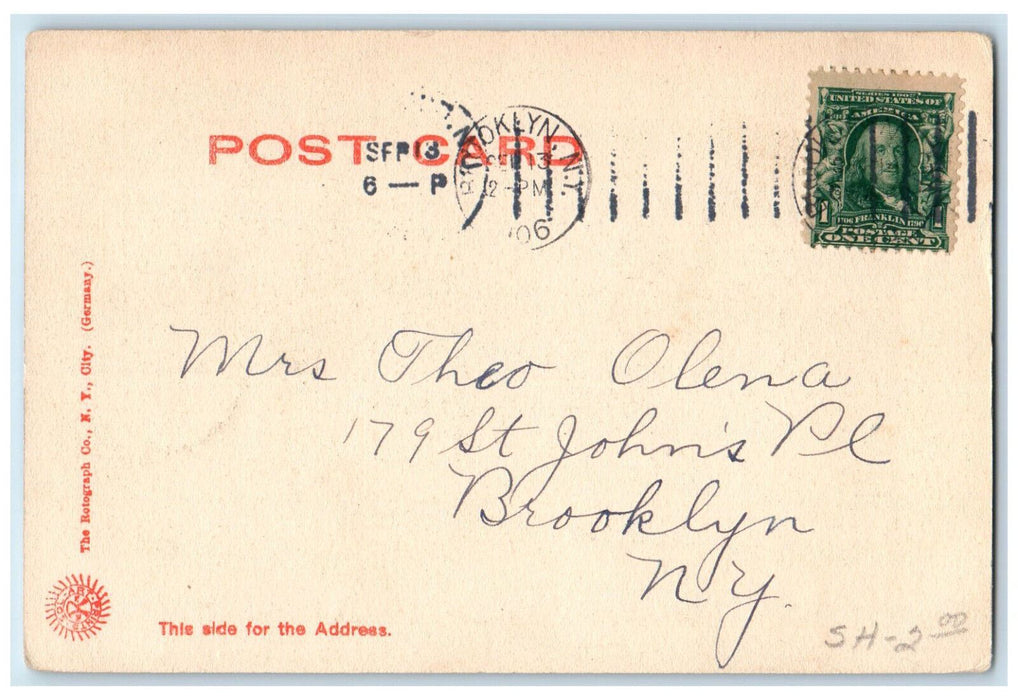 POST CARD
SEP 13
6 — P
BROOKLYN, N.Y.
SEP 13
2-PM
'06
SERIES 1902
UNITED STATES OF
AMERICA
1706 FRANKLIN 1790
POSTAGE
1 ONE CENT
Mrs Theo Olena
179 St John's Pl
Brooklyn
N.Y.
The Rotograph Co., N. Y., City. (Germany.)
This side for the Address.
SH-2 00